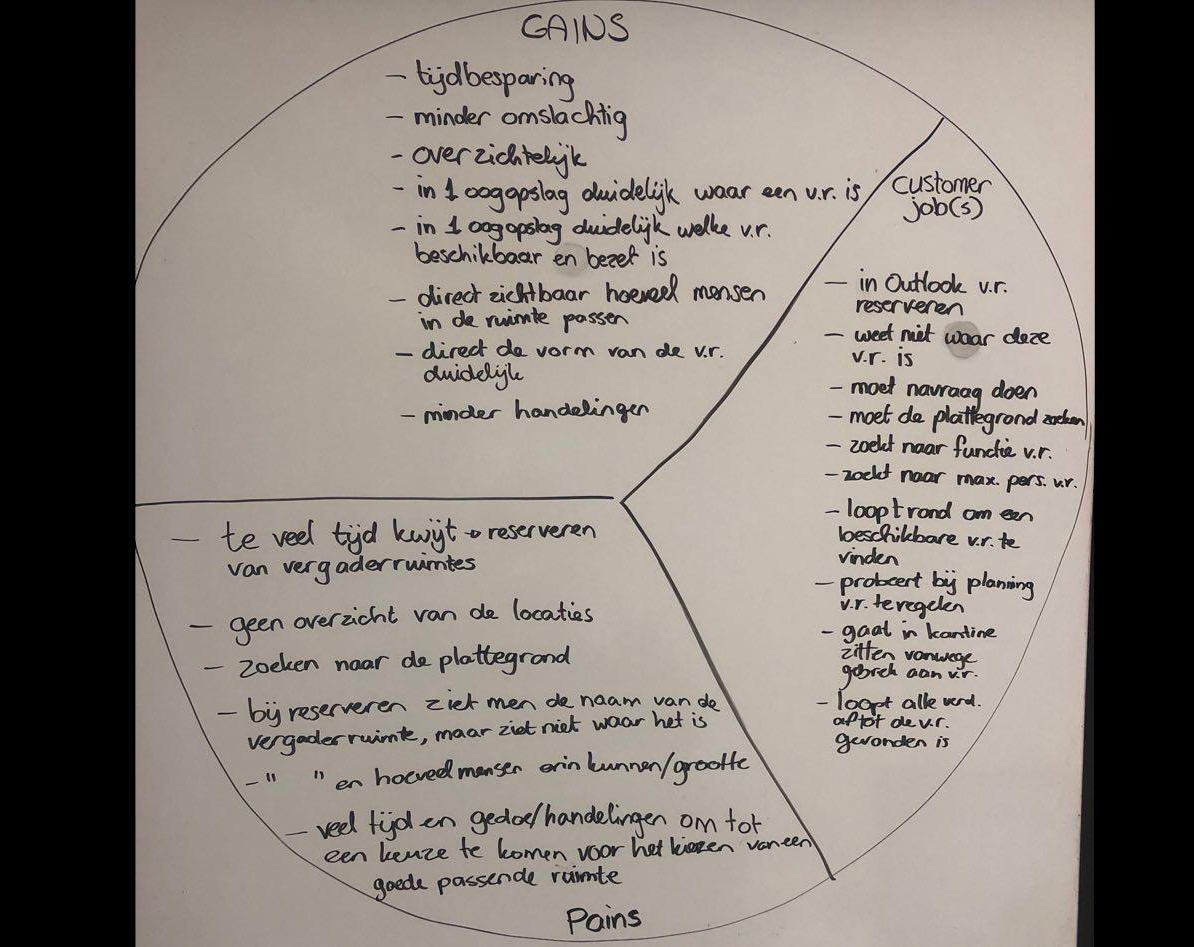 GAINS
- tijdbesparing
- minder omslachtig
- overzichtelijk
- in 1 oogopslag duidelijk waar een v.r. is
- in 1 oogopslag duidelijk welke v.r.
beschikbaar en bezet is
- direct zichtbaar hoeveel mensen
in de ruimte passen
- direct de vorm van de v.r.
duidelijk
- minder handelingen
customer
job(s)
- in Outlook v.r.
reserveren
- weet niet waar deze
v.r. is
- moet navraag doen
- moet de plattegrond zoeken
- zoekt naar functie v.r.
- zoekt naar max. pers. v.r.
- loopt rond om een
beschikbare v.r. te
vinden
- probeert bij planning
v.r. te regelen
- gaat in kantine
zitten vanwege
gebrek aan v.r.
- loopt alle verd.
af tot de v.r.
gevonden is
- te veel tijd kwijt → reserveren
van vergaderruimtes
- geen overzicht van de locaties
- zoeken naar de plattegrond
- bij reserveren ziet men de naam van de
vergaderruimte, maar ziet niet waar het is
- " " en hoeveel mensen erin kunnen/grootte
- veel tijd en gedoe/handelingen om tot
een keuze te komen voor het kiezen van een
goede passende ruimte
Pains